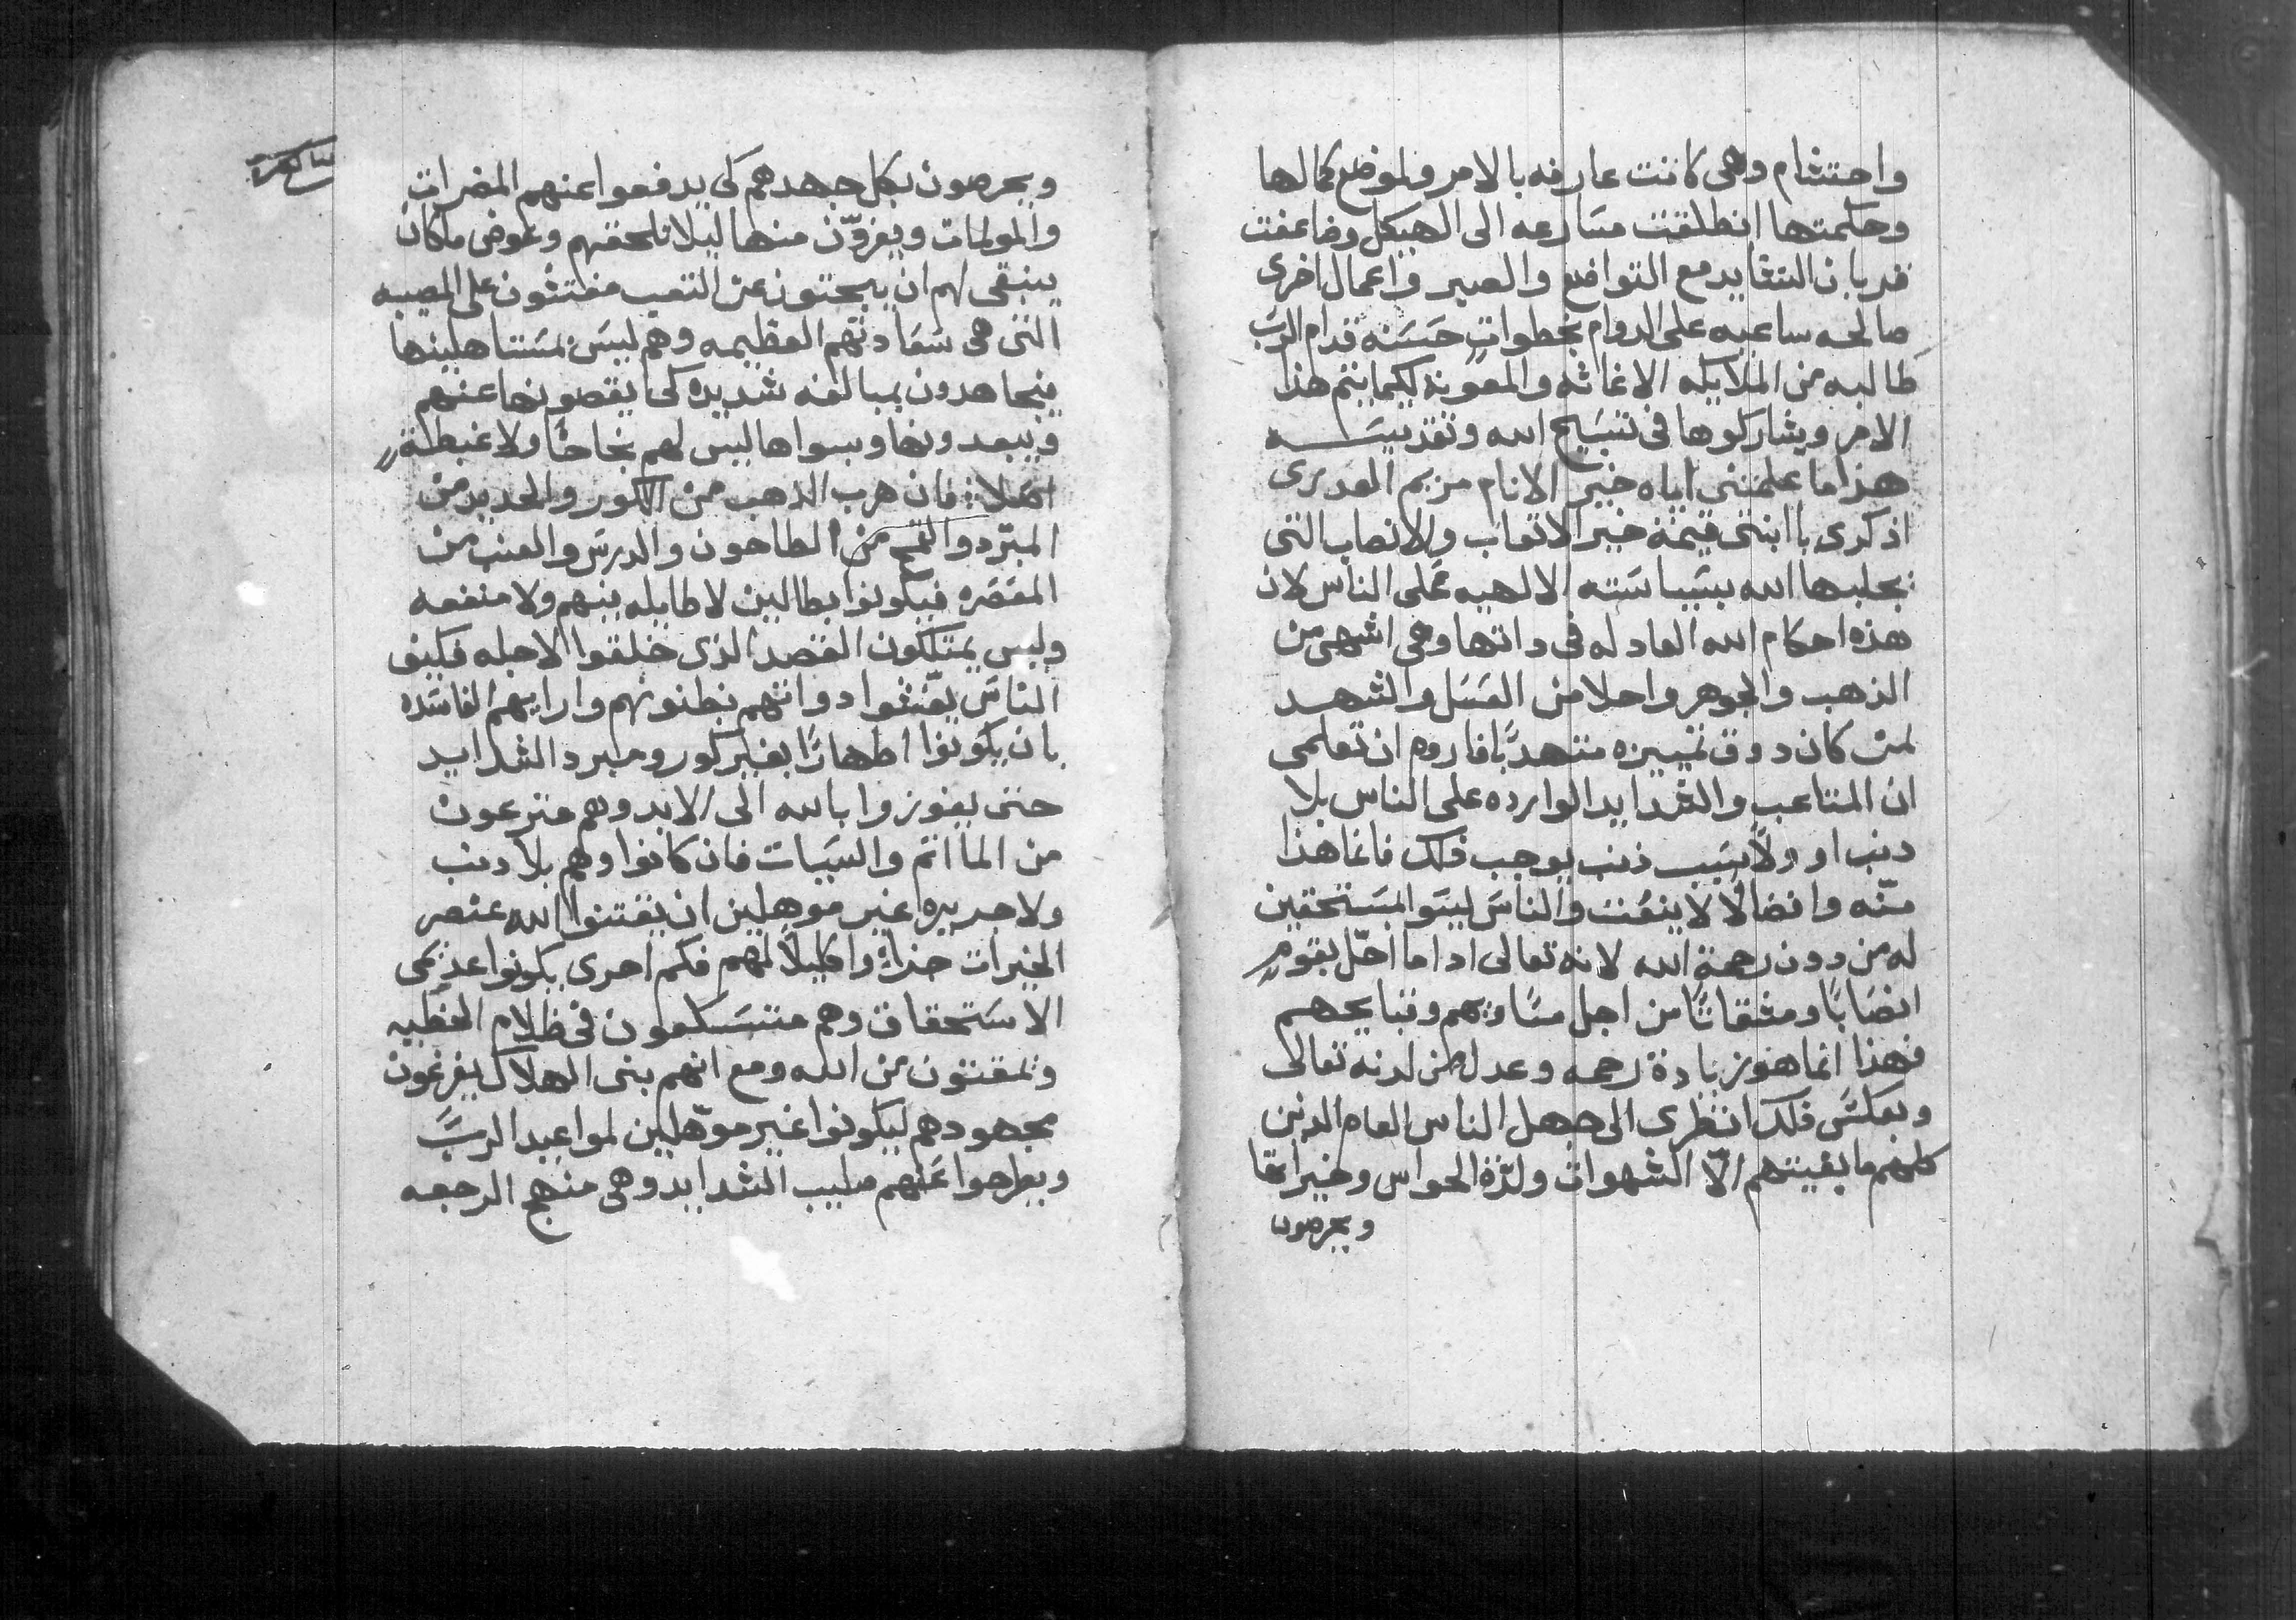 واحتشام وهى كانت عارفه بالامر ولموضع كمالها
وحكمتها انطلقت مسارعه الى الهيكل وضاعفت
قدبان الشدايد مع التواضع والصبر واعمال اخرى
صالحه ساعيه على الدوام بخطوات حسنه قدام الرب
طالبه من الملايكه الاغاثه والمعونه لكيما يتم هذا
الامر ويشاركوها فى تسبيح الله وتقديسه
هذا ما علمتنى اياه خير الانام مريم العدرى
اذكرى يا ابنتى قيمة خير الاتعاب والانصاب التى
يجلبها الله بسياسته الالهيه على الناس لان
هذه احكام الله العادله فى داتها وهى اشهى من
الذهب والجوهر واحلا من العسل والشهد
لمن كان دوق تمييزه متهدبا فاروم ان تعلمى
ان المتاعب والشدايد الوارده على الناس بلا
دنب او ولا بسبب ذنب يوجب ذلك فانما هذا
منّه وافضالا لا ينعت والناس ليسوا بمستحقين
له من دون رحمة الله لانه تعالى اداما احلّ بقوم
انصابا ومشقاتا من اجل مساويهم وقبايحهم
فهذا انما هو زيادة رحمه وعدل من لدنه تعالى
وبعكس ذلك انظرى الى جهل الناس العام الدين
كلهم ما بغيتهم الّا الشهوات ولذة الحواس وخيراتها
ويحرصون
ويحرصون بكل جهدهم كى يدفعوا عنهم المضرات
والمولمات ويفرّون منها ليلا تلحقهم وعوض ماكان
ينبغى لهم ان يبحتون عن التعب مفتشون على المصيبه
التى هى سعادتهم العظيمه وهم ليس بمستاهلينها
فيجاهدون بمبالغه شديده كى يقصونها عنهم
ويبعدونها وبسواها ليس لهم نجاحا ولا غبطة
اصلا: فان هرب الذهب من الكور والحديد من
المبرد والقمح من الطاحون والدرس والعنب من
المعصره فيكونوا بطالين لا طايله بينهم ولا منفعه
وليس يمتلكون القصد الذى خلقوا لاجله فكيف
الناس يغشوا دواتهم بظنونهم وارايهم الفاسده
بان يكونوا اطهارا بغير كور ومبرد الشدايد
حتى يفوزوا بالله الى الابد وهم مترعون
من الماتم والسيات فان كانوا وهم بلا دنب
ولا جريره غير موهلين ان يقتنوا الله عنصر
الخيرات جزاءً واكليلا لهم فكم احرى يكونوا عديمى
الاستحقاق وهم متسكعون فى ظلام الخطيه
وممقتون من الله ومع انهم بنى الهلاك يفرغون
مجهودهم ليكونوا غير موهلين لمواعيد الرب
ويطرحوا عنهم صليب الشدايد وهى منهج الرجعه